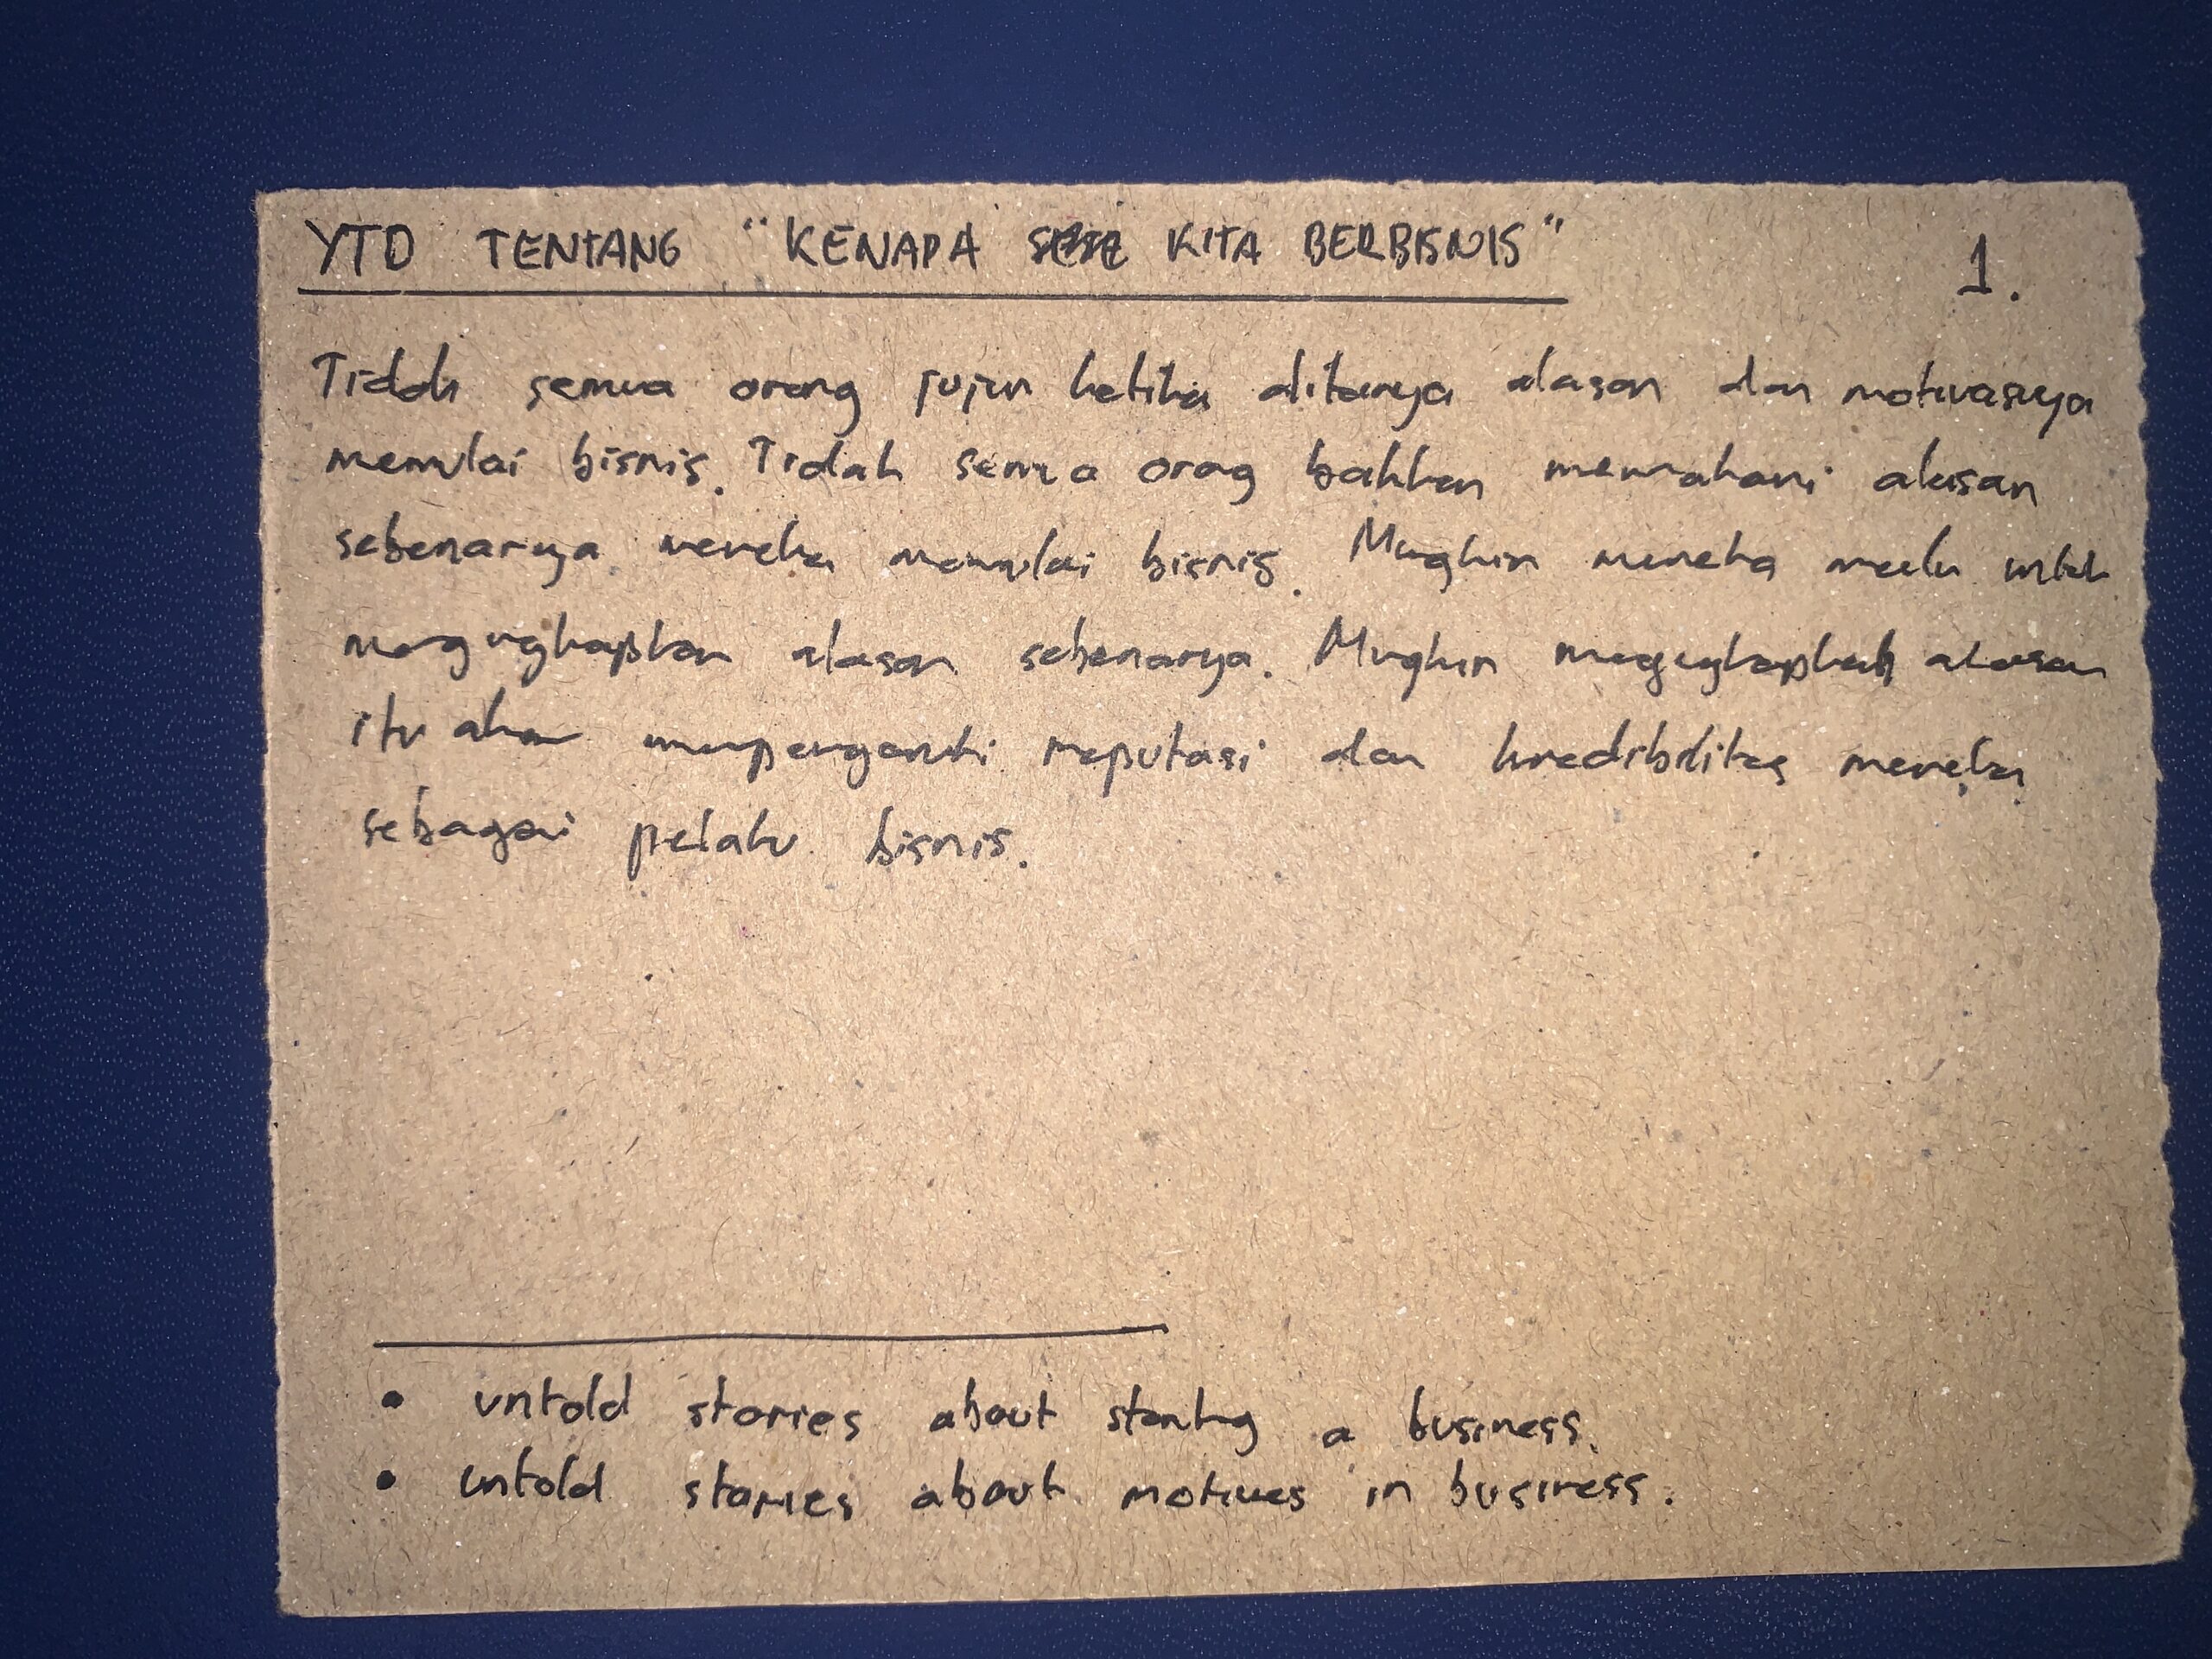 YTD TENTANG "KENAPA KITA BERBISNIS"
1.
Tidak semua orang jujur ketika ditanya alasan dan motivasinya
memulai bisnis. Tidak semua orang bahkan memahami alasan
sebenarnya mereka memulai bisnis. Mungkin mereka malu untuk
mengungkapkan alasan sebenarnya. Mungkin mengungkapkan alasan
itu akan mempengaruhi reputasi dan kredibilitas mereka
sebagai pelaku bisnis.
• untold stories about starting a business.
• untold stories about motives in business.